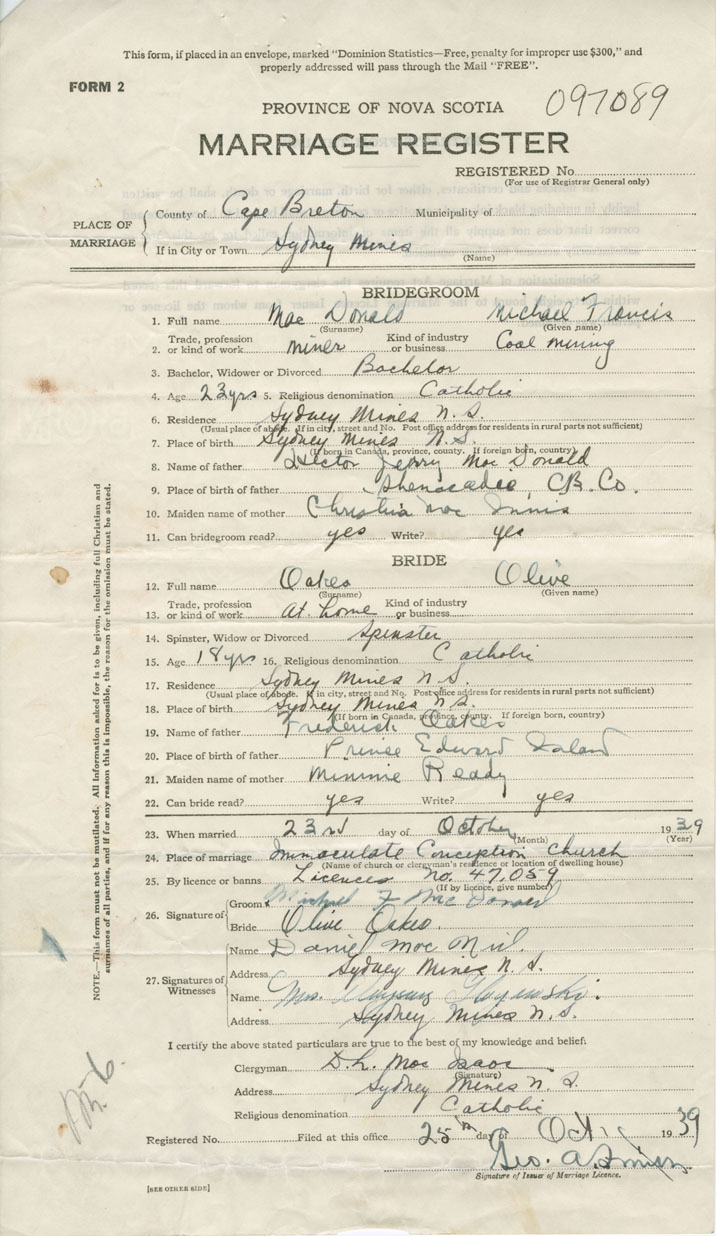 This form, if placed in an envelope, marked "Dominion Statistics—Free, penalty for improper use $300," and
properly addressed will pass through the Mail "FREE".
FORM 2
097089
PROVINCE OF NOVA SCOTIA
MARRIAGE REGISTER
REGISTERED No.
(For use of Registrar General only)
PLACE OF MARRIAGE
County of Cape Breton Municipality of
If in City or Town Sydney Mines
(Name)
BRIDEGROOM
1. Full name Mac Donald Michael Francis
(Surname) (Given name)
2. Trade, profession or kind of work miner Kind of industry or business Coal mining
3. Bachelor, Widower or Divorced Bachelor
4. Age 23 yrs 5. Religious denomination Catholic
6. Residence Sydney Mines N.S.
(Usual place of abode. If in city, street and No. Post office address for residents in rural parts not sufficient)
7. Place of birth Sydney Mines N.S.
(If born in Canada, province, county. If foreign born, country)
8. Name of father Hector Jerry Mac Donald
9. Place of birth of father Shenacadie, C.B. Co.
10. Maiden name of mother Christina Mac Innis
11. Can bridegroom read? yes Write? yes
BRIDE
12. Full name Oakes Olive
(Surname) (Given name)
13. Trade, profession or kind of work At home Kind of industry or business
14. Spinster, Widow or Divorced Spinster
15. Age 18 yrs 16. Religious denomination Catholic
17. Residence Sydney Mines N.S.
(Usual place of abode. If in city, street and No. Post office address for residents in rural parts not sufficient)
18. Place of birth Sydney Mines N.S.
(If born in Canada, province, county. If foreign born, country)
19. Name of father Frederick Oakes
20. Place of birth of father Prince Edward Island
21. Maiden name of mother Minnie Ready
22. Can bride read? yes Write? yes
23. When married 23rd day of October 1939
(Month) (Year)
24. Place of marriage Immaculate Conception Church
(Name of church or clergyman's residence or location of dwelling house)
25. By licence or banns Licences No. 47,059
(If by licence, give number)
26. Signature of
Groom Michael F Mc Donald
Bride Olive Oakes.
27. Signatures of Witnesses
Name Daniel Mac Neil.
Address Sydney Mines N.S.
Name Mrs.
Address Sydney Mines N.S.
I certify the above stated particulars are true to the best of my knowledge and belief.
Clergyman D. L. Mac Isaac
(Signature)
Address Sydney Mines N.S.
Religious denomination Catholic
Registered No. Filed at this office 25th day of Oct 1939
Geo. A.
Signature of Issuer of Marriage Licence.
[SEE OTHER SIDE]
NOTE.—This form must not be mutilated. All information asked for is to be given, including full Christian and
surnames of all parties, and if for any reason this is impossible, the reason for the omission must be stated.